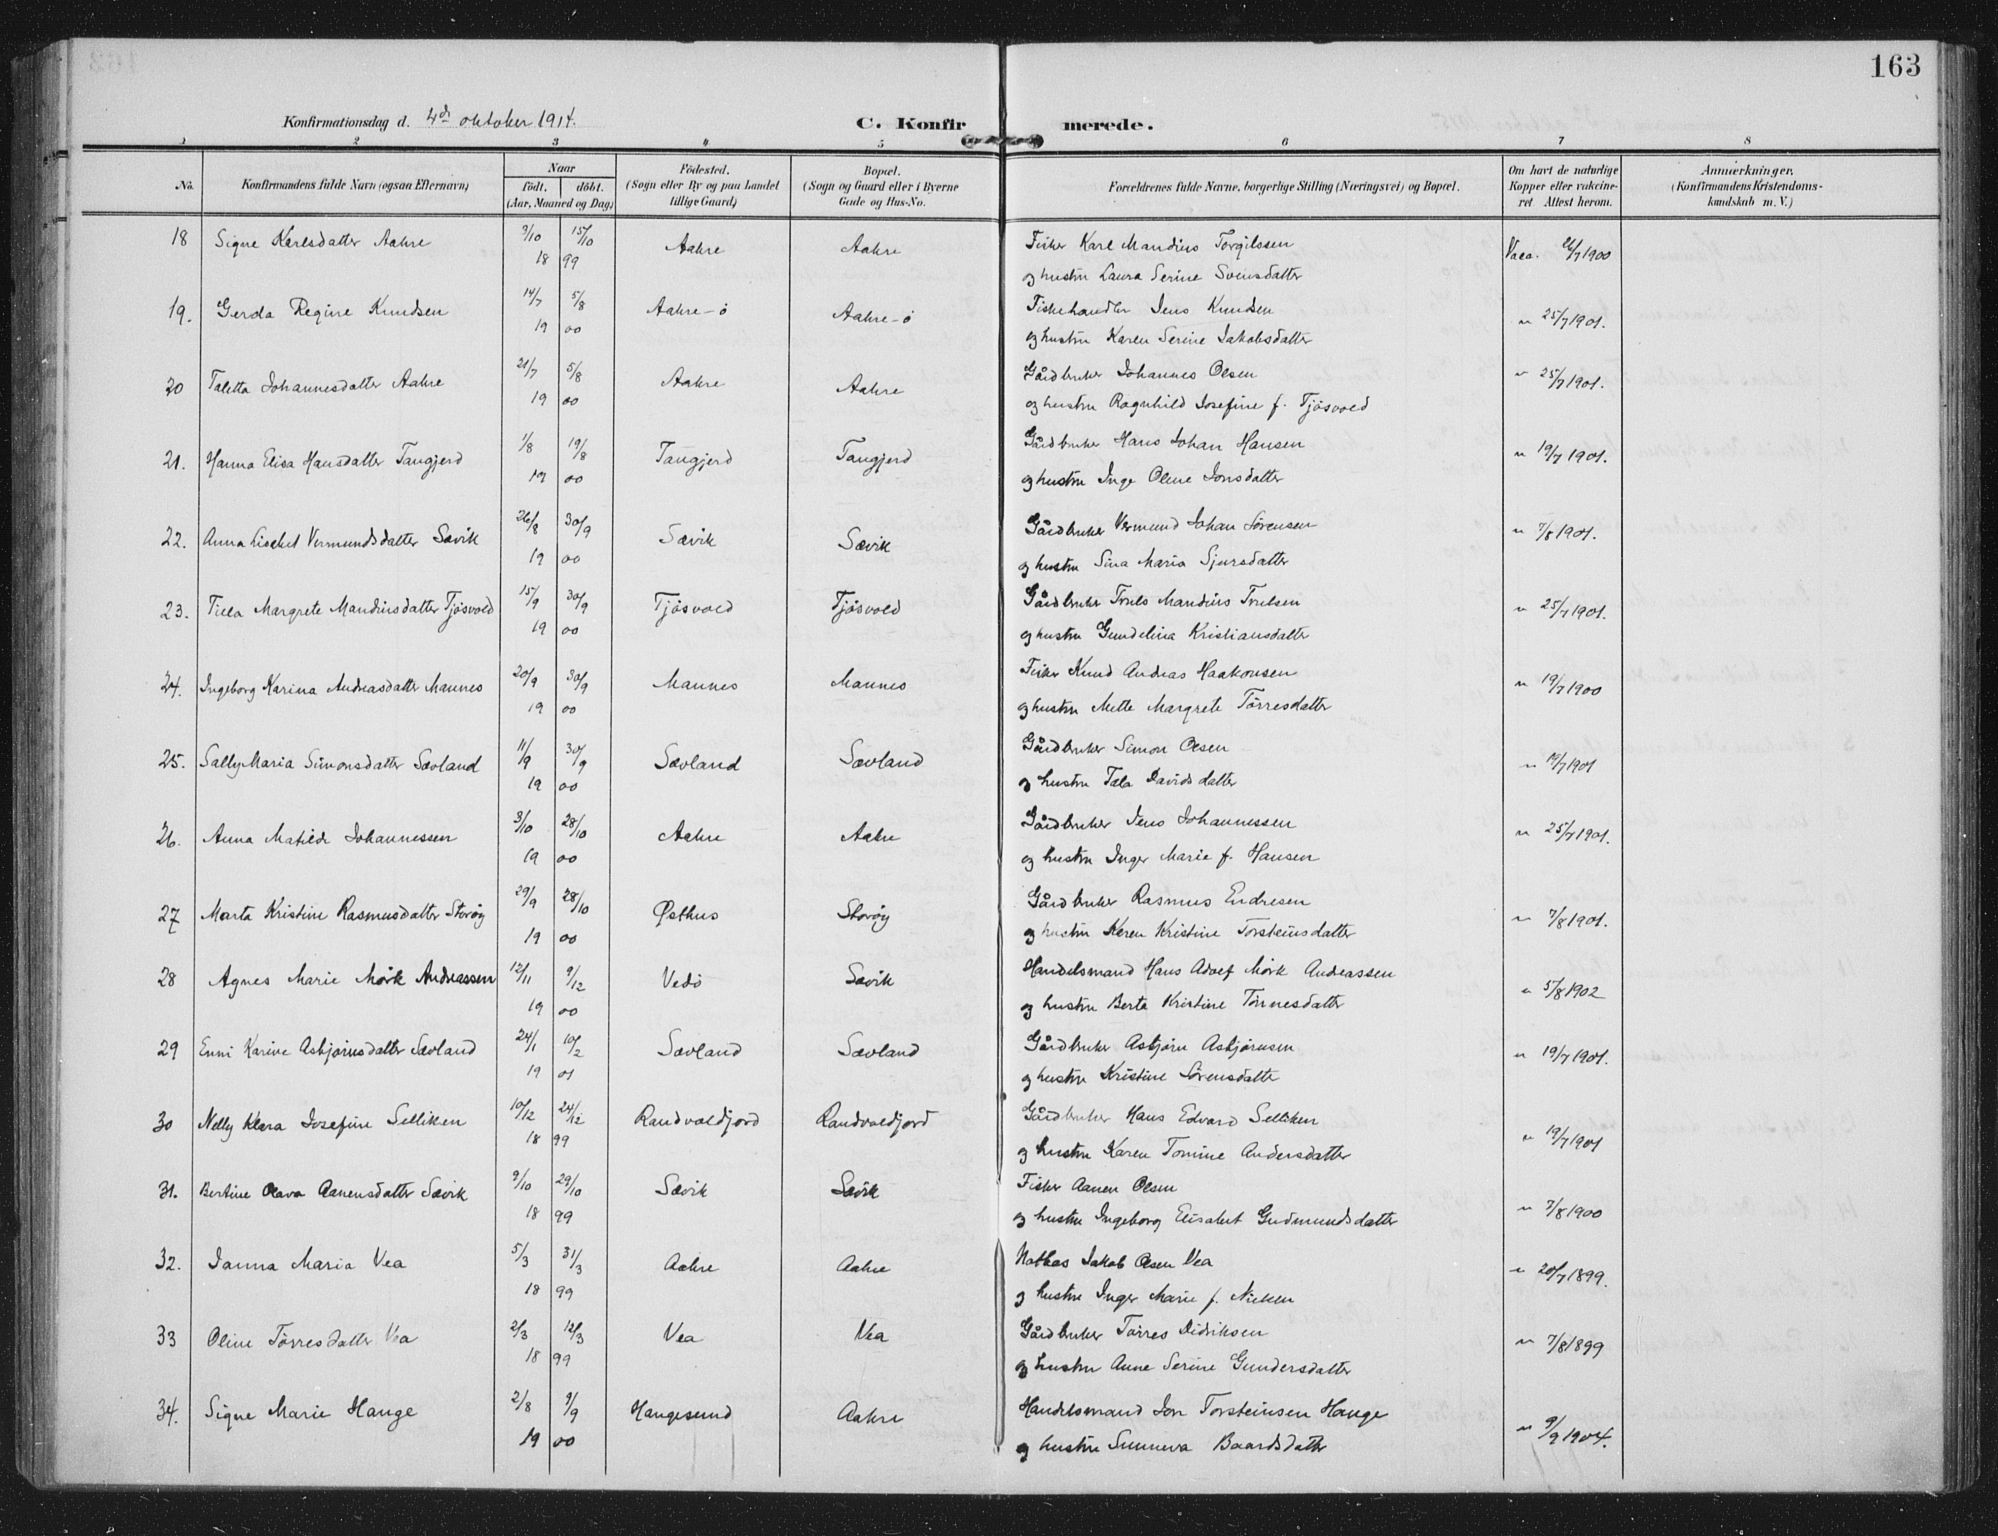 163
Konfirmationsdag d. 4de oktober 1914.
C. Konfirmerede.
1 2 3 4 5 6 7 8
No.
Konfirmandens fulde Navn (ogsaa Efternavn)
Naar
født. døbt.
(Aar, Maaned og Dag)
Fødested.
(Sogn eller By og paa Landet
tillige Gaard)
Bopæl.
(Sogn og Gaard eller i Byerne
Gade og Hus-No.
Forældrenes fulde Navne, borgerlige Stilling (Næringsvei) og Bopæl.
Om havt de naturlige
Kopper eller vakcine-
ret Attest herom.
Anmærkninger.
(Konfirmandens Kristendoms-
kundskab m. V.)
18 Signe Karlsdatter Aakre 9/10 15/10 Aakre Aakre Fisker Karl Mandius Torgilssen Vacc. 26/7 1900
18 99 og hustru Laura Serine Svensdatter
19. Gerda Regine Knudsen 14/7 5/8 Aakre-ö Aakre-ö Fiskehandler Jens Knudsen " 25/7 1901.
19 00 og hustru Karen Serine Jakobsdatter
20 Taletta Johannesdatter Aakre 21/7 5/8 Aakre Aakre Gårdbruker Johannes Olsen " 25/7 1901.
19 00 og hustru Ragnhild Josefine f. Tjösvold
21. Hanna Elisa Hansdatter Tangjerd 1/8 19/8 Tangjerd Tangjerd Gårdbruker Hans Johan Hansen " 19/7 1901.
19 00 og hustru Inge Oline Jonsdatter
22. Anna Lisabet Vermundsdatter Sævik 26/8 30/9 Sævik Sævik Gårdbruker Vermund Johan Sörensen " 7/8 1901.
19 00 og hustru Sina Maria Sjursdatter
23. Tilla Margrete Mandiusdatter Tjösvold 15/9 30/9 Tjösvold Tjösvold Gårdbruker Truls Mandius Trulsen " 25/7 1901.
19 00 og hustru Gundelina Kristiansdatter
24. Ingeborg Karina Andreasdatter Mannes 20/9 30/9 Mannes Mannes Fisker Knud Andreas Haakonsen " 19/7 1900
19 00 og hustru Mette Margrete Törresdatter
25. Sally Maria Simonsdatter Sævland 11/9 30/9 Sævland Sævland Gårdbruker Simon Olsen " 19/7 1901
19 00 og hustru Tala Davidsdatter
26. Anna Matilde Johannessen 3/10 28/10 Aakre Aakre Gårdbruker Jens Johannessen " 25/7 1901.
19 00 og hustru Inger Marie f. Hansen
27 Marta Kristine Rasmusdatter Storöy 29/9 28/10 Østhus Storöy Gårdbruker Rasmus Endresen " 7/8 1901.
19 00 og hustru Karen Kristine Torsteinsdatter
28 Agnes Marie Mörk Andreassen 12/11 9/12 Vedö Sævik Handelsmand Hans Adolf Mörk Andreassen " 5/8 1902
19 00 og hustru Berta Kristine Tönnesdatter
29 Enni Karine Asbjörnsdatter Sævland 24/1 10/2 Sævland Sævland Gårdbruker Asbjörn Asbjörnsen " 19/7 1901.
19 01 og hustru Kristine Sörensdatter
30 Nelly Klara Josefine Selliken 10/12 24/12 Sandvaldjord Sandvaldjord Gårdbruker Hans Edvard Selliken " 19/7 1901
18 99 og hustru Karen Tomine Andersdatter
31. Bertine Olava Aanensdatter Sævik 9/10 29/10 Sævik Sævik Fisker Aanen Olsen " 7/8 1900
18 99 og hustru Ingeborg Elisabet Gudmundsdatter
32. Janna Maria Vea 5/3 31/3 Aakre Aakre Jakob Olsen Vea " 20/7 1899.
18 99 og hustru Inger Marie f. Nielsen
33 Oline Törresdatter Vea 2/3 12/3 Vea Vea Gårdbruker Törres Didriksen " 7/8 1899
18 99 og hustru Anne Serine Gundersdatter
34. Signe Marie Hauge 2/8 9/9 Haugesund Aakre Handelsmand Jon Torsteinsen Hauge " 9/9 1904.
19 00 og hustru Sunneva Baardsdatter